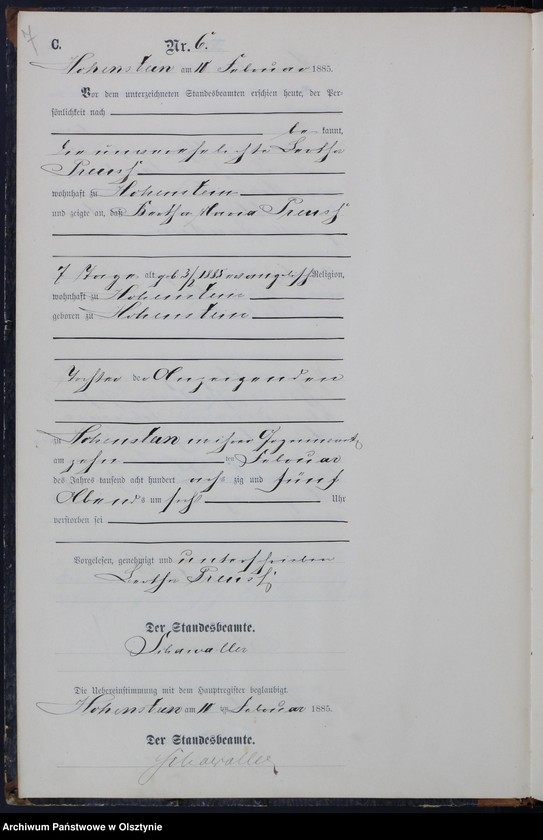 7
C.
Nr. 6.
Hohenstein am 11 Februar 1885.
Vor dem unterzeichneten Standesbeamten erschien heute, der Per-
sönlichkeit nach
be kannt,
die unverehelichte Bertha
Preuß
wohnhaft zu Hohenstein
und zeigte an, daß Bertha Maria Preuß
7 Tage alt, geb 3/2 1885 evangelisch Religion,
wohnhaft zu Hohenstein
geboren zu Hohenstein
Tochter der Anzeigenden
zu Hohenstein in ihrer Gegenwart
am zehn ten Februar
des Jahres tausend acht hundert acht zig und fünf
Abends um sechs Uhr
verstorben sei
Vorgelesen, genehmigt und unterschrieben
Bertha Preuß
Der Standesbeamte.
Schawaller
Die Uebereinstimmung mit dem Hauptregister beglaubigt.
Hohenstein am 11 Februar 1885.
Der Standesbeamte.
Schawaller
Archiwum Państwowe w Olsztynie